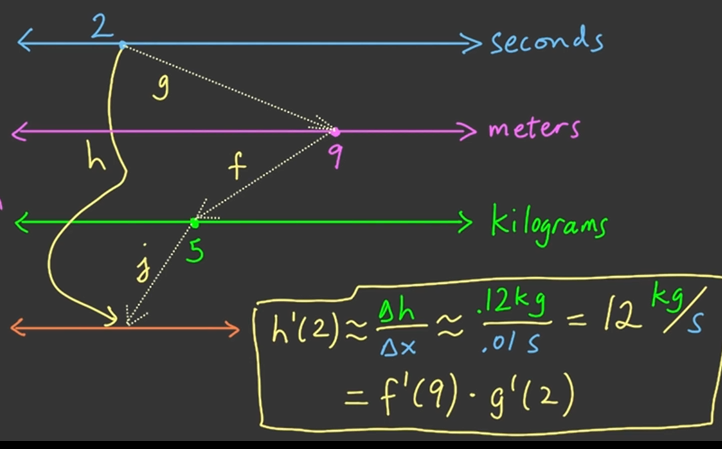 2
seconds
g
meters
h
f
9
kilograms
j
5
h'(2) ≈ Δh/Δx ≈ .12kg/.01 s = 12 kg/s
= f'(9) · g'(2)